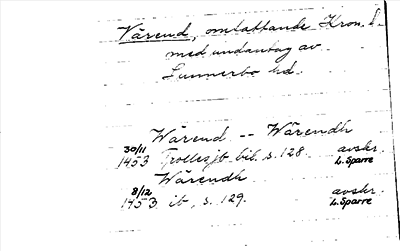 Värend, omfattande Kron. l.
med undantag av
Sunnerbo hd.
Wärend -- Wärendh
30/11
1453 Trollezjb. bil. s. 128. avskr.
L. Sparre
Wärendh
8/12
1453 ib, s. 129. avskr.
L. Sparre